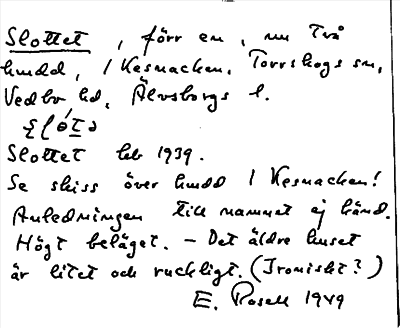 Slottet, förr en, nu Två
hmdd, 1 Kesnacken, Torrskogs sn,
Vedbo hd, Älvsborgs l.
Slottet heb 1939.
Se skiss över hmdd 1 Kesnacken!
Anledningen till namnet ej känd.
Högt beläget. – Det äldre huset
är litet och ruckligt. (Ironiskt?)
E. Rosell 1949